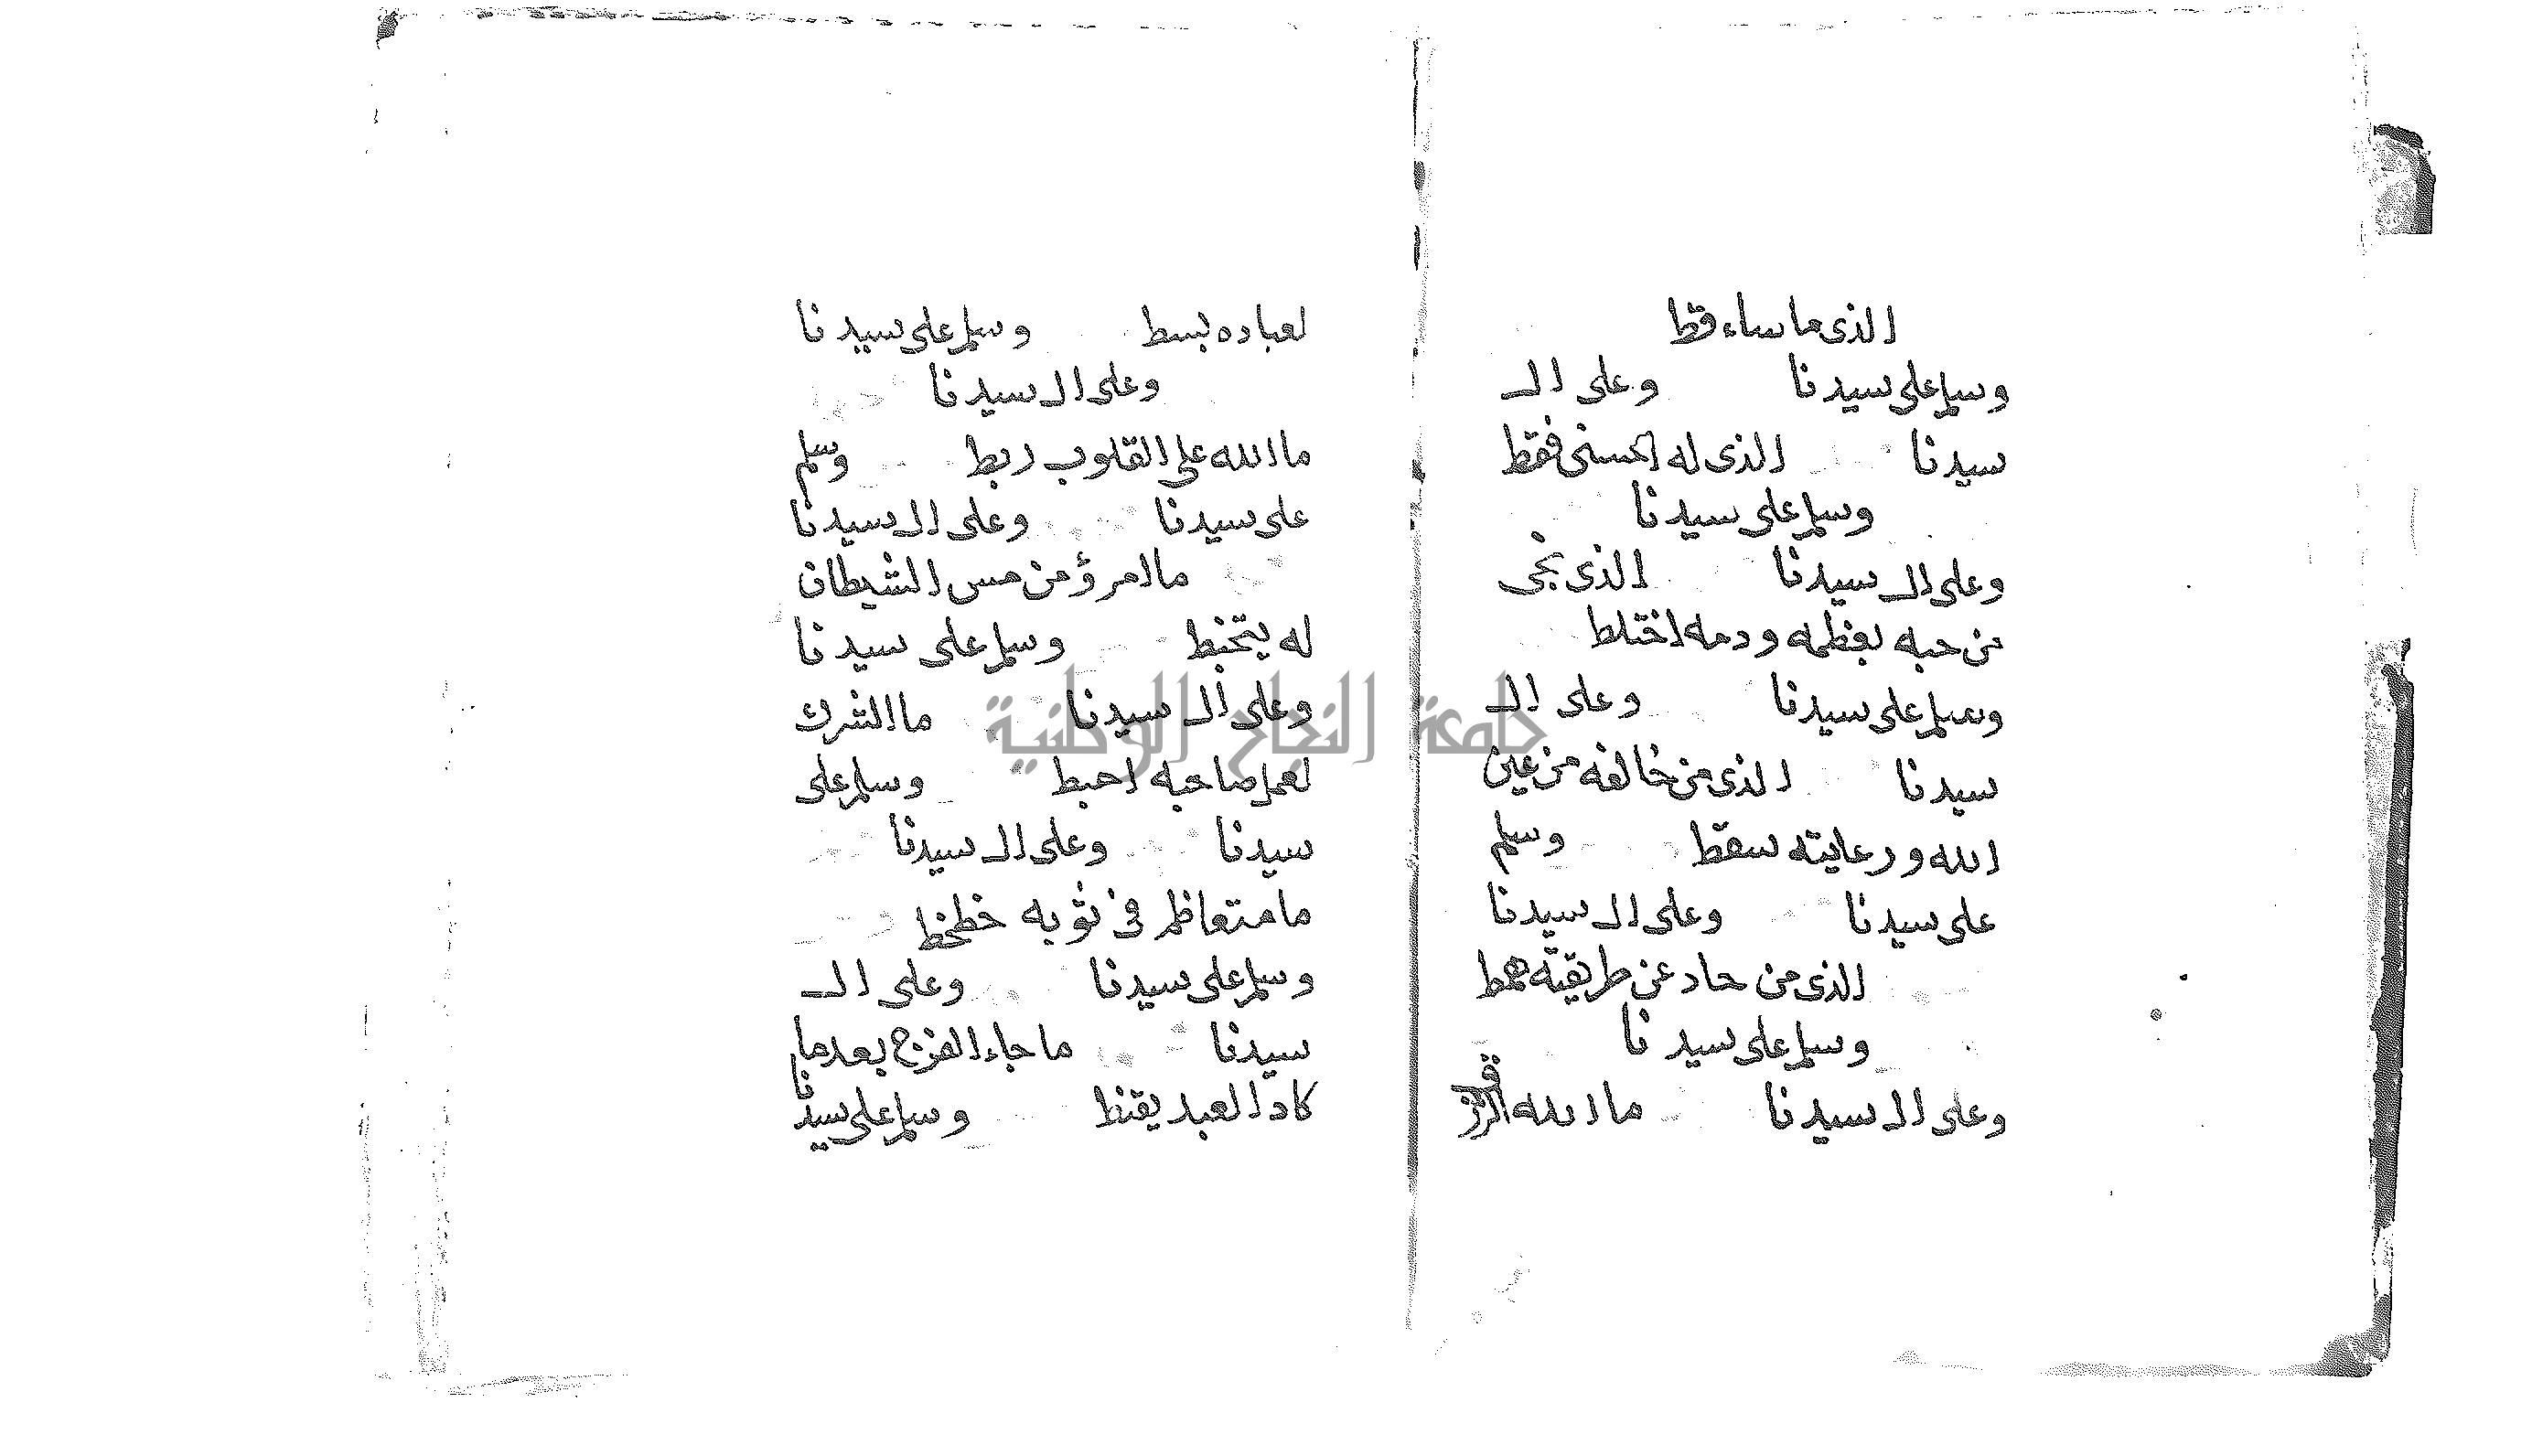 الذى ماساء قط
وسلم على سيدنا وعلى ال
سيدنا الذى له الحسنى فقط
وسلم على سيدنا
وعلى ال سيدنا الذى نجى
من حبه بعظمه ودمه اختلط
وسلم على سيدنا وعلى ال
سيدنا الذى من خالفه من عين
الله ورعايته سقط وسلم
على سيدنا وعلى ال سيدنا
الذى من حاد عن طريقته همط
وسلم على سيدنا
وعلى ال سيدنا ما الله الرزق
لعباده بسط وسلم على سيدنا
وعلى ال سيدنا
ما الله على القلوب ربط وسلم
على سيدنا وعلى ال سيدنا
ما امرؤ من مس الشيطان
له يتخبط وسلم على سيدنا
وعلى ال سيدنا ما الشرك
لعمل صاحبه احبط وسلم على
سيدنا وعلى ال سيدنا
ما متعاظم فى ثوبه خطخط
وسلم على سيدنا وعلى ال
سيدنا ما جاء الفرج بعد ما
كاد العبد يقنط وسلم على سيدنا
جامعة النجاح الوطنية